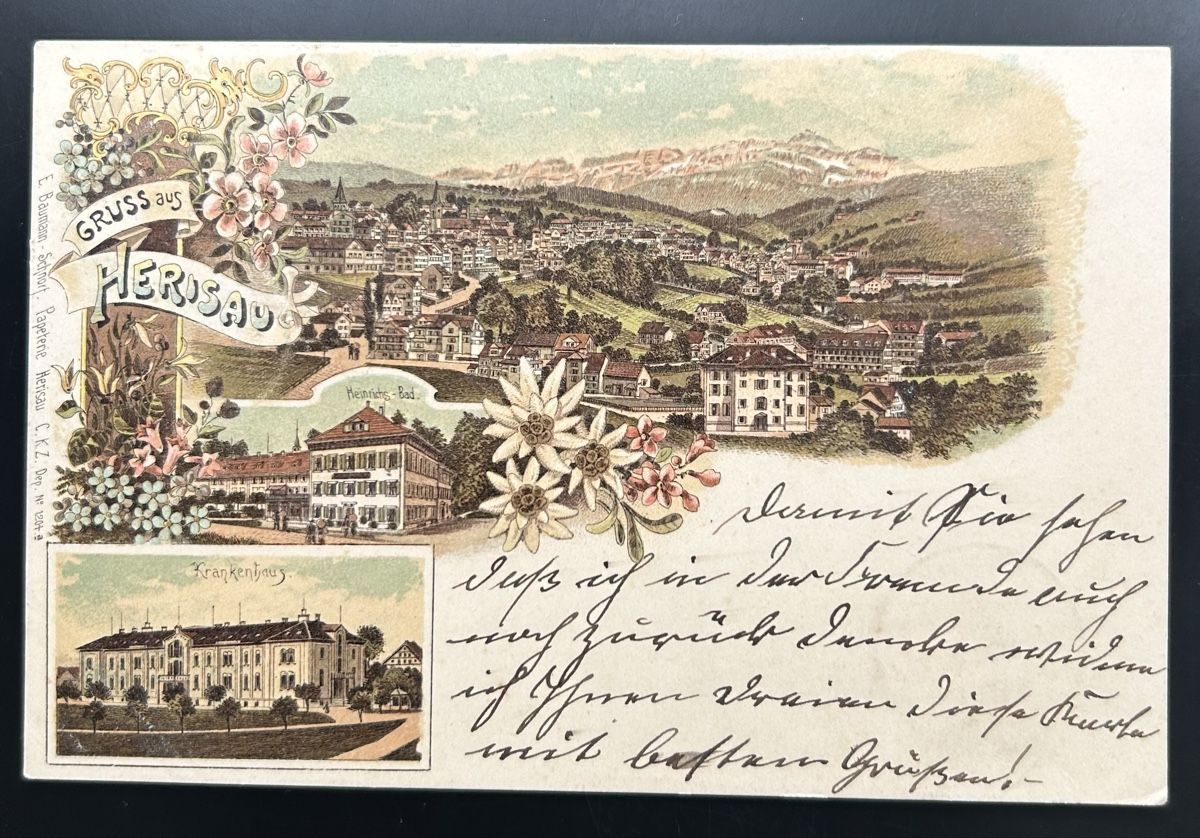 GRUSS aus
HERISAU
E. Baumann-Schnorf. Papeterie, Herisau C.K.Z. Dep. Nº 1204 a
Heinrichs-Bad.
Krankenhaus.
Damit Sie sehen
daß ich in der Fremde auch
noch zurück denke widme
ich Ihnen dreien diese Karte
mit besten Grüßen!